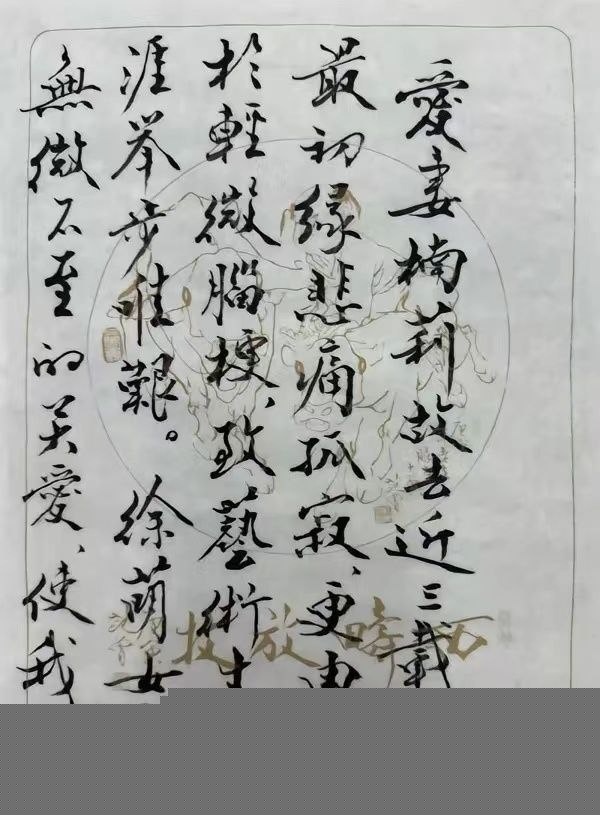 愛妻楠莉故去近三載
最初緣悲痛孤寂、更由
於輕微腦梗、致藝術生
涯举步唯艱。徐萌女
無微不至的关愛、使我